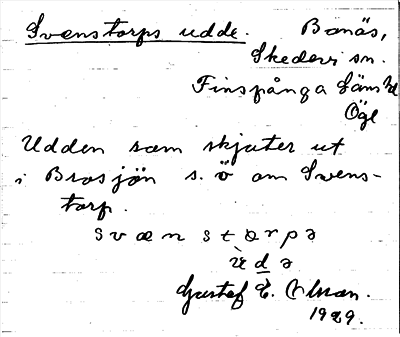 Svenstorps udde. Bonäs,
Skedevi sn.
Finspånga läns hd
Ögl
Udden som skjuter ut
i Brosjön s. ö om Svens-
torp.
svænstɔrpə
ùdə
Gustaf E. Olsson.
1929.